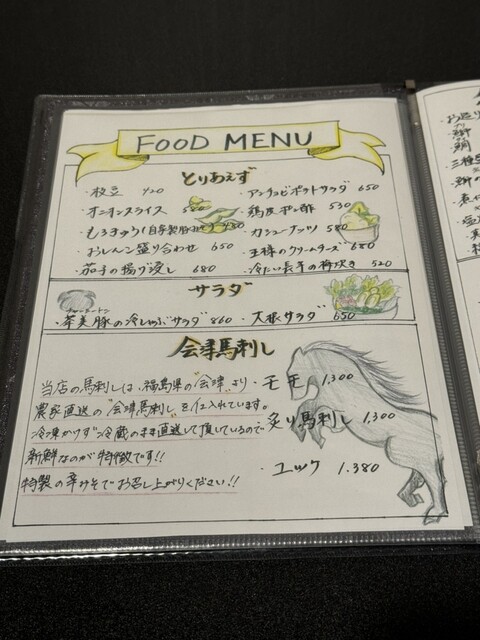 FOOD MENU
とりあえず
・枝豆 420
・オニオンスライス 580
・もろきゅうり(自家製
・おしんこ盛り合わせ 650
・茄子の揚げ浸し 680
・アンチョビポテトサラダ 650
・鶏皮ポン酢 530
・カシューナッツ 580
・王様のクリームチーズ 680
・冷たい長芋の 520
サラダ
・豚の冷しゃぶサラダ 860 ・大根サラダ 650
会津馬刺し
当店の馬刺しは、福島県の"会津"より
農家直送の"会津馬刺し"を仕入れています。
冷凍かけず冷蔵のまま直送して頂いているので
新鮮なのが特徴です!!
特製の辛みそでお召し上がりください!!
・モモ 1,300
・炙り馬刺し 1,300
・ユッケ 1.380
お造り
三種